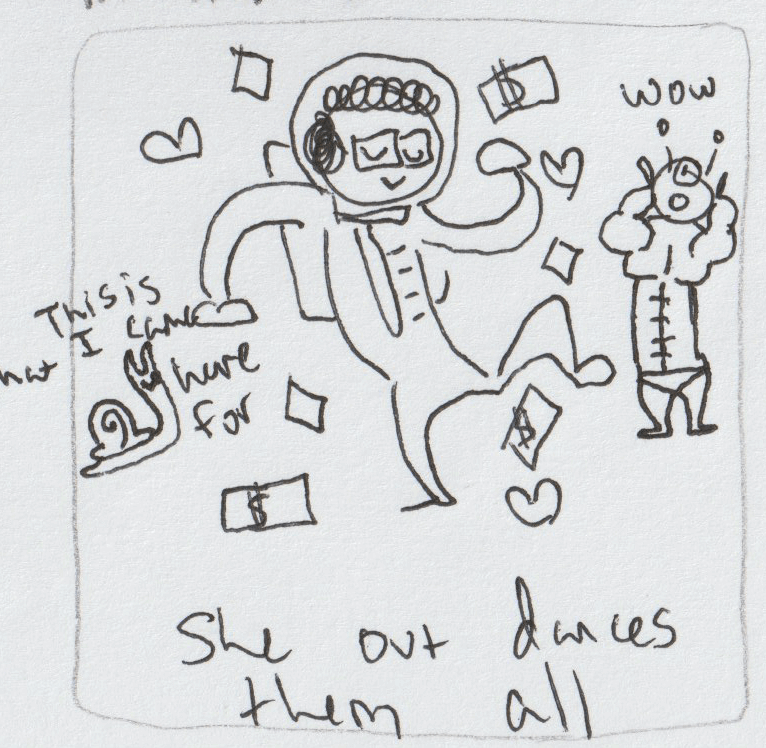 $
wow
This is
hat I came
here
for
$
$
She out dances
them all